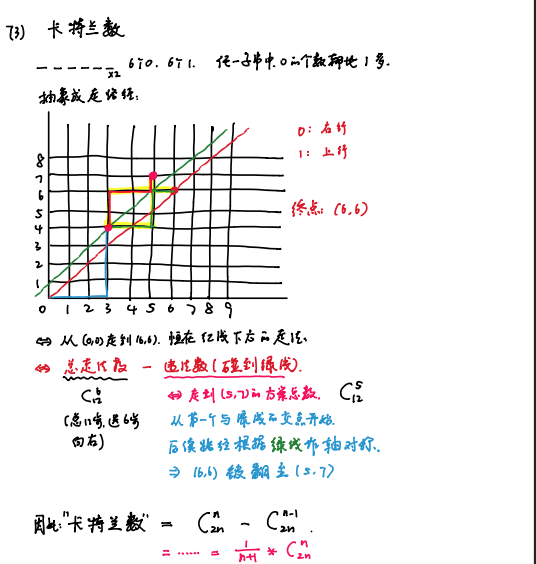 (3) 卡特兰数
_ _ _ _ _ _ x2 6个0. 6个1. 任一子串中. 0的个数都比1多.
抽象成走路径:
0: 右行
1: 上行
终点: (6,6)
8
7
6
5
4
3
2
1
0 1 2 3 4 5 6 7 8 9
⇔ 从(0,0)走到(6,6). 恒在红线下方的走法.
⇔ 总走法数 - 违法数(碰到绿线).
C₁₂⁶ ⇔ 走到(5,7)的方案总数. C₁₂⁵
(总12步, 选6步向右)
从第一个与绿线的交点开始.
后续路径根据绿线作轴对称.
⇒ (6,6)被翻至(5,7)
因此:"卡特兰数" = C₂ₙⁿ - C₂ₙⁿ⁻¹.
= ...... = 1/(n+1) * C₂ₙⁿ